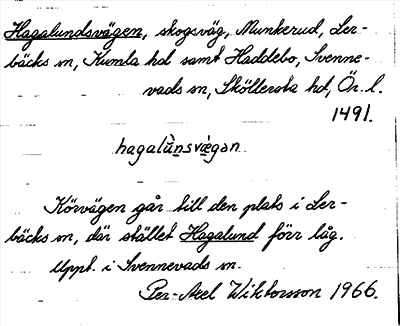 Hagalundsvägen, skogsväg, Munkerud, Ler-
bäcks sn, Kumla hd samt Haddebo, Svenne-
vads sn, Sköllersta hd, Ör. l.
1491.
hagalùnsvägən
Körvägen går till den plats i Ler-
bäcks sn, där stället Hagalund förr låg.
Uppt. i Svennevads sn.
Per-Axel Wiktorsson 1966.